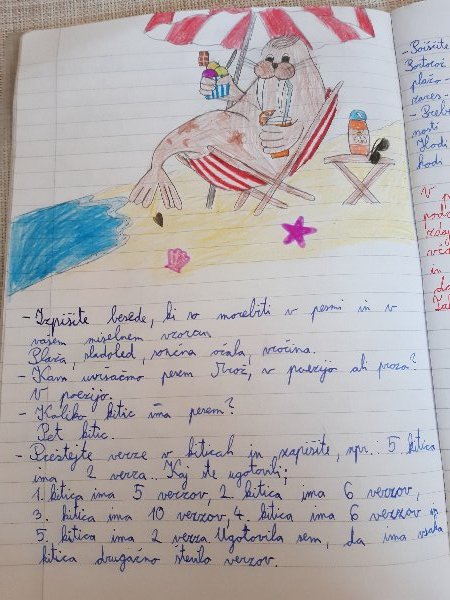 - Izpišite besede, ki so morebiti v pesmi in v
vašem miselnem vzorcu
Plaža, sladoled, sončna očala, vročina.
- Kam uvrščamo pesem Mrož, v poezijo ali prozo?
V poezijo.
- Koliko kitic ima pesem?
Pet kitic.
- Preštejte verze v kiticah in zapišite, npr.: 5. kitica
ima 2 verza... Kaj ste ugotovili;
1. kitica ima 5 verzov, 2. kitica ima 6 verzov,
3. kitica ima 10 verzov, 4. kitica ima 6 verzov in
5. kitica ima 2 verza. Ugotovila sem, da ima vsaka
kitica drugačno število verzov.
- Poiščite
plažo -
- Preb
nosti
Hodi
hodi
V p
in
da